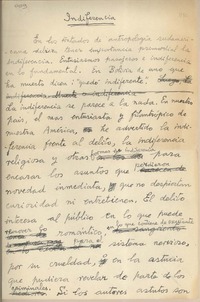 Indiferencia
En los estudios de antropología
debiera importancia primordial la
indiferencia. Entusiasmos pasajeros e indiferencia
en lo fundamental. En Bolivia de uno que
ha muerto dice: "quedó indiferente".
La indiferencia se parece a la nada. En nuestro
país, el mas entusiasta y filantrópico de
nuestra América, he advertido la indi-
ferencia frente al delito, la indiferencia
religiosa y para
encarar los asuntos que
novedad inmediata, y que no despiertan
curiosidad ni entretienen. El delito
interesa al público en lo que puede
romántico, en lo que
para el sistema nervioso,
por su crueldad, en la astucia
que pudiera revelar de parte de los
criminales. Si los autores astutos son